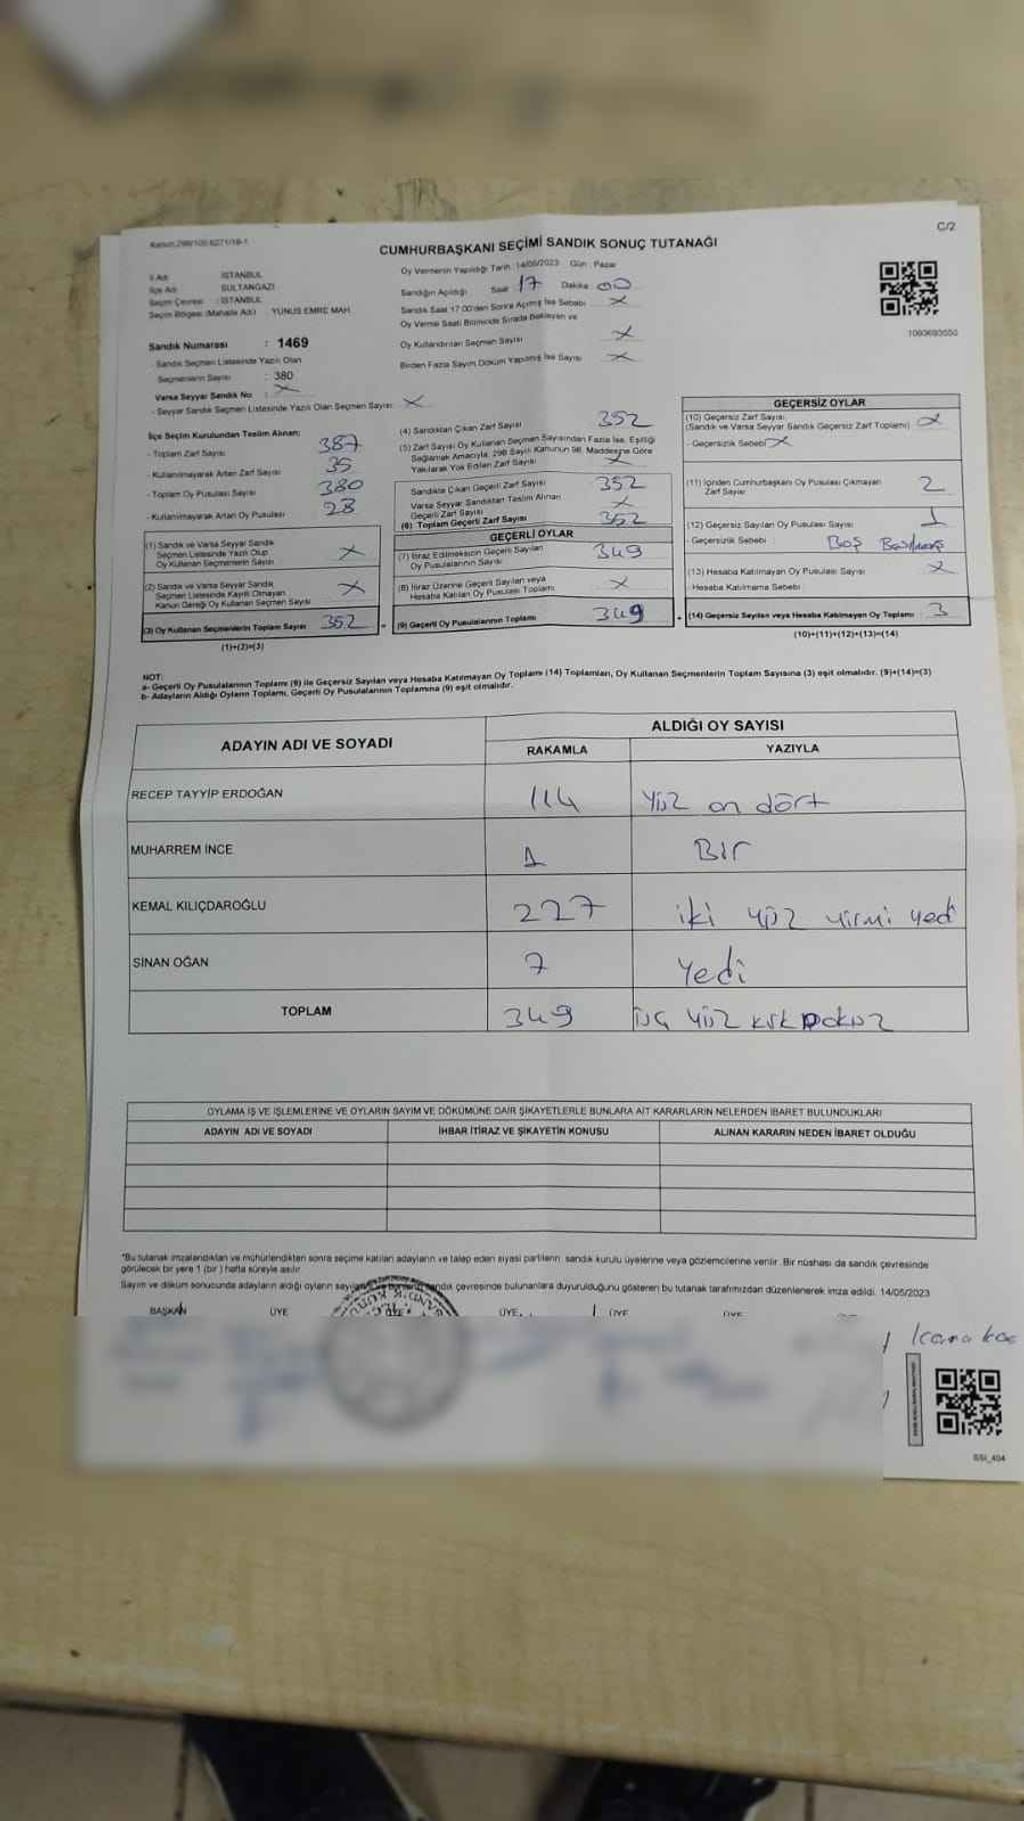 Kanun:298/105-6271/18-1
C/2
CUMHURBAŞKANI SEÇİMİ SANDIK SONUÇ TUTANAĞI
İl Adı : İSTANBUL
İlçe Adı : SULTANGAZİ
Seçim Çevresi : İSTANBUL
Seçim Bölgesi (Mahalle Adı) : YUNUS EMRE MAH.
Sandık Numarası : 1469
Sandık Seçmen Listesinde Yazılı Olan
Seçmenlerin Sayısı : 380
Varsa Seyyar Sandık No : X
- Seyyar Sandık Seçmen Listesinde Yazılı Olan Seçmen Sayısı: X
Oy Vermenin Yapıldığı Tarih : 14/05/2023 Gün : Pazar
Sandığın Açıldığı Saat : 17 Dakika : 00
Sandık Saat 17.00'den Sonra Açılmış İse Sebebi : X
Oy Verme Saati Bitiminde Sırada Bekleyen ve
Oy Kullandırılan Seçmen Sayısı X
Birden Fazla Sayım Döküm Yapılmış İse Sayısı X
1093693550
İlçe Seçim Kurulundan Teslim Alınan:
- Toplam Zarf Sayısı 387
- Kullanılmayarak Artan Zarf Sayısı 35
- Toplam Oy Pusulası Sayısı 380
- Kullanılmayarak Artan Oy Pusulası 28
(1) Sandık ve Varsa Seyyar Sandık
Seçmen Listesinde Yazılı Olup
Oy Kullanan Seçmenlerin Sayısı X
(2) Sandık ve Varsa Seyyar Sandık
Seçmen Listesinde Kayıtlı Olmayan
Kanun Gereği Oy Kullanan Seçmen Sayısı X
(3) Oy Kullanan Seçmenlerin Toplam Sayısı 352
(1)+(2)=(3)
(4) Sandıktan Çıkan Zarf Sayısı 352
(5) Zarf Sayısı Oy Kullanan Seçmen Sayısından Fazla İse, Eşitliği
Sağlamak Amacıyla, 298 Sayılı Kanunun 98. Maddesine Göre
Yakılarak Yok Edilen Zarf Sayısı X
Sandıkta Çıkan Geçerli Zarf Sayısı 352
Varsa Seyyar Sandıktan Teslim Alınan
Geçerli Zarf Sayısı X
(6) Toplam Geçerli Zarf Sayısı 352
GEÇERLİ OYLAR
(7) İtiraz Edilmeksizin Geçerli Sayılan
Oy Pusulalarının Sayısı 349
(8) İtiraz Üzerine Geçerli Sayılan veya
Hesaba Katılan Oy Pusulası Toplamı X
(9) Geçerli Oy Pusulalarının Toplamı 349
GEÇERSİZ OYLAR
(10) Geçersiz Zarf Sayısı
(Sandık ve Varsa Seyyar Sandık Geçersiz Zarf Toplamı) X
- Geçersizlik Sebebi X
(11) İçinden Cumhurbaşkanı Oy Pusulası Çıkmayan
Zarf Sayısı 2
(12) Geçersiz Sayılan Oy Pusulası Sayısı 1
- Geçersizlik Sebebi : BOŞ
(13) Hesaba Katılmayan Oy Pusulası Sayısı X
Hesaba Katılmama Sebebi :
(14) Geçersiz Sayılan veya Hesaba Katılmayan Oy Toplamı : 3
(10)+(11)+(12)+(13)=(14)
NOT:
a- Geçerli Oy Pusulalarının Toplamı (9) ile Geçersiz Sayılan veya Hesaba Katılmayan Oy Toplamı (14) Toplamları, Oy Kullanan Seçmenlerin Toplam Sayısına (3) eşit olmalıdır. (9)+(14)=(3)
b- Adayların Aldığı Oyların Toplamı, Geçerli Oy Pusulalarının Toplamına (9) eşit olmalıdır.
ADAYIN ADI VE SOYADI
ALDIĞI OY SAYISI
RAKAMLA YAZIYLA
RECEP TAYYİP ERDOĞAN 114 yüz on dört
MUHARREM İNCE 1 Bir
KEMAL KILIÇDAROĞLU 227 iki yüz yirmi yedi
SİNAN OĞAN 7 Yedi
TOPLAM 349 üç yüz kırk Dokuz
OYLAMA İŞ VE İŞLEMLERİNE VE OYLARIN SAYIM VE DÖKÜMÜNE DAİR ŞİKAYETLERLE BUNLARA AİT KARARLARIN NELERDEN İBARET BULUNDUKLARI
ADAYIN ADI VE SOYADI İHBAR İTİRAZ VE ŞİKAYETİN KONUSU ALINAN KARARIN NEDEN İBARET OLDUĞU
*Bu tutanak imzalandıktan ve mühürlendikten sonra seçime katılan adayların ve talep eden siyasi partilerin sandık kurulu üyelerine veya gözlemcilerine verilir. Bir nüshası da sandık çevresinde
görülecek bir yere 1 (bir) hafta süreyle asılır.
Sayım ve döküm sonucunda adayların aldığı oyların sandık çevresinde bulunanlara duyurulduğunu gösteren bu tutanak tarafımızdan düzenlenerek imza edildi. 14/05/2023
BAŞKAN ÜYE ÜYE ÜYE ÜYE ÜYE
SSI_404